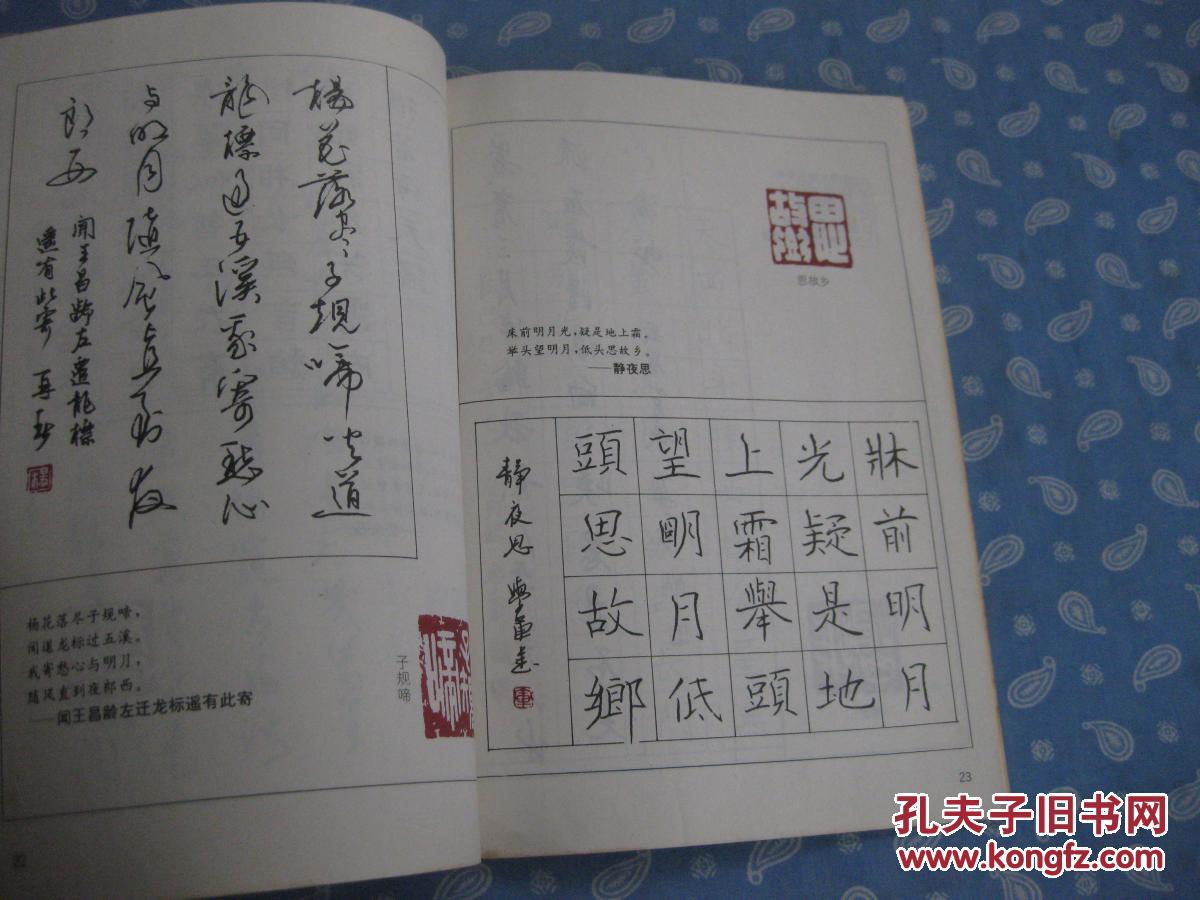 楊花落尽子規啼聞道
龍標過五溪我寄愁心
与明月随風直到夜
郎西
聞王昌龄左遷龍標
遥有此寄
杨花落尽子规啼，
闻道龙标过五溪。
我寄愁心与明月，
随风直到夜郎西。
——闻王昌龄左迁龙标遥有此寄
子规啼
思故乡
床前明月光，疑是地上霜。
举头望明月，低头思故乡。
——静夜思
牀前明月
光疑是地
上霜舉頭
望明月低
頭思故鄉
靜夜思
23
孔夫子旧书网
www.kongfz.com